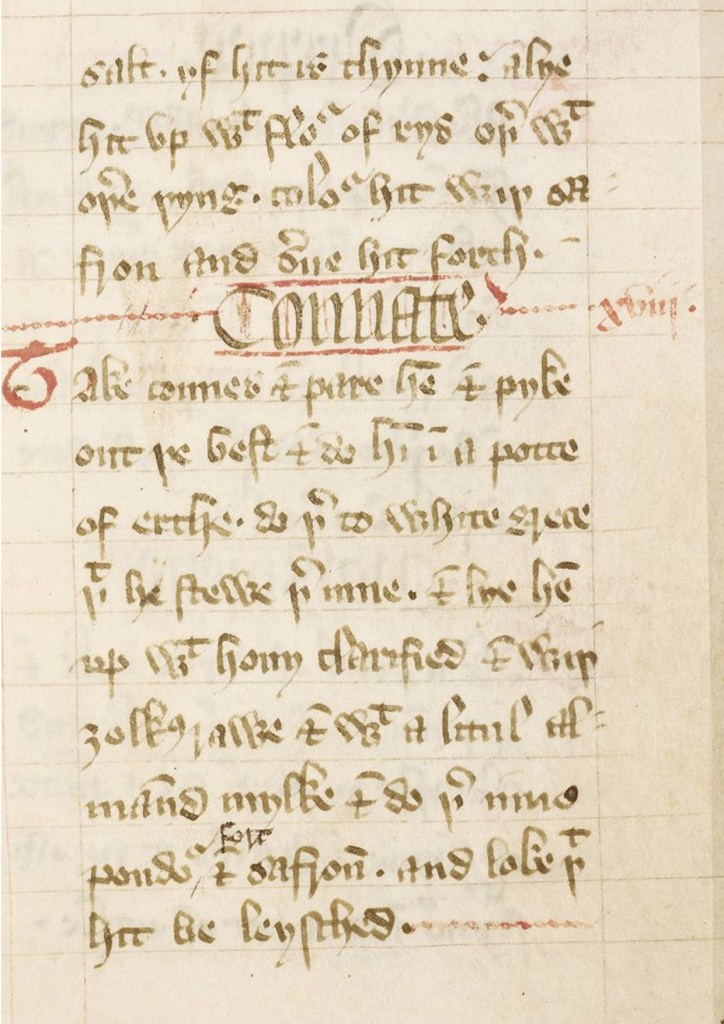 salt. yf hit is thynne: alye
hit vp wᵗ floᵒ of rys oþ̉ wᵗ
oþ̉e þyng. coloᵒ hit wiþ saf-
fron and s̉ue hit forth.
Connate. xviij.
Take connes & pare hē & pyke
out þe best & do hē ī a potte
of erthe. do þ̉ to white grece
þᵗ he stewe þ̉ inne. & lye hē
up wᵗ hony clarified & wiþ
ȝolkꝭ rawe & wᵗ a litul al-
maūd mylke & do þ̉ inne
poudoᵒ fort & safroῆ. and loke þᵗ
hit be leysched.